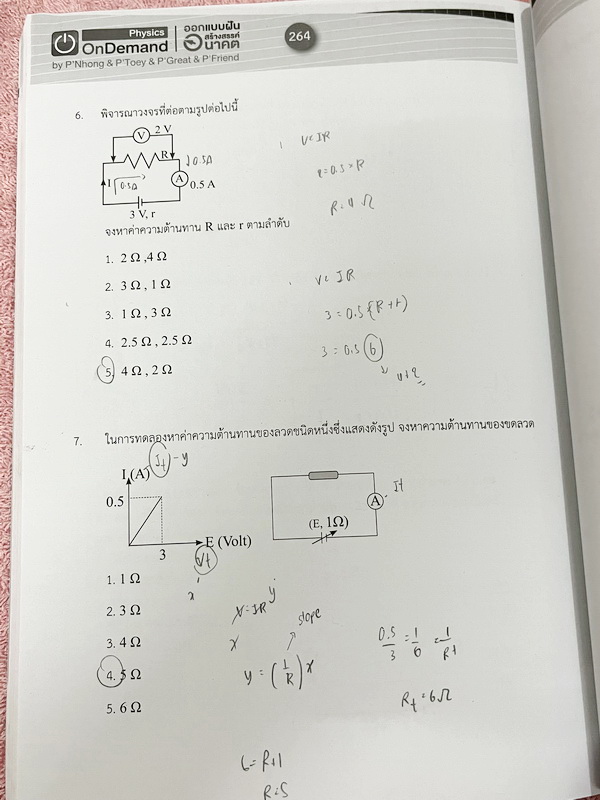 Physics
OnDemand
by P'Nhong & P'Toey & P'Great & P'Friend
ออกแบบฝัน
สร้างสรรค์
อนาคต
264
6. พิจารณาวงจรที่ต่อตามรูปต่อไปนี้
V 2 V
R
0.5A
I
0.5A
A 0.5 A
3 V, r
V=IR
R=4 Ω
จงหาค่าความต้านทาน R และ r ตามลำดับ
1. 2 Ω ,4 Ω
2. 3 Ω , 1 Ω
3. 1 Ω , 3 Ω
4. 2.5 Ω , 2.5 Ω
5. 4 Ω , 2 Ω
V=IR
3=0.5(R+r)
3=0.5(6)
4+2
7. ในการทดลองหาค่าความต้านทานของลวดชนิดหนึ่งซึ่งแสดงดังรูป จงหาความต้านทานของขดลวด
I (A)
It - y
0.5
3
E (Volt)
Vt
x
A
It
(E, 1Ω)
1. 1 Ω
2. 3 Ω
3. 4 Ω
4. 5 Ω
5. 6 Ω
V=IR
y
x
slope
y = (1/R)x
0.5/3 = 1/6 = 1/Rt
Rt = 6Ω
6=R+1
R=5